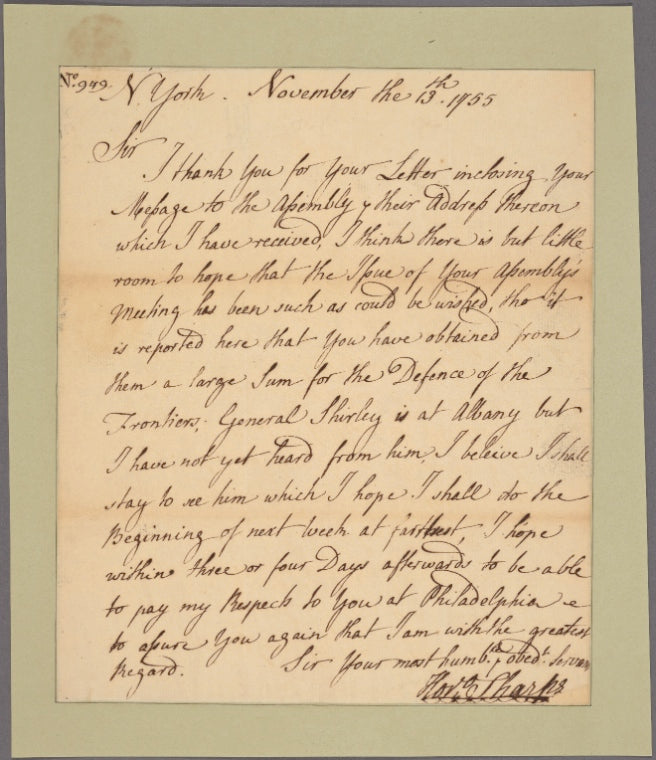 No. 949
N. York. November the 13th. 1755
Sir
I thank You for Your Letter inclosing Your
Message to the Assembly & their Address thereon
which I have received, I think there is but little
room to hope that the Issue of Your Assembly's
Meeting has been such as could be wished, tho it
is reported here that You have obtained from
them a large Sum for the Defence of the
Frontiers; General Shirley is at Albany but
I have not yet heard from him, I beleive I shall
stay to see him which I hope I shall do the
Beginning of next Week at farthest, I hope
within three or four Days afterwards to be able
to pay my Respects to You at Philadelphia &
to assure You again that I am with the greatest
Regard. Sir Your most humb.le & obed.t Servant
Hor.o Sharpe